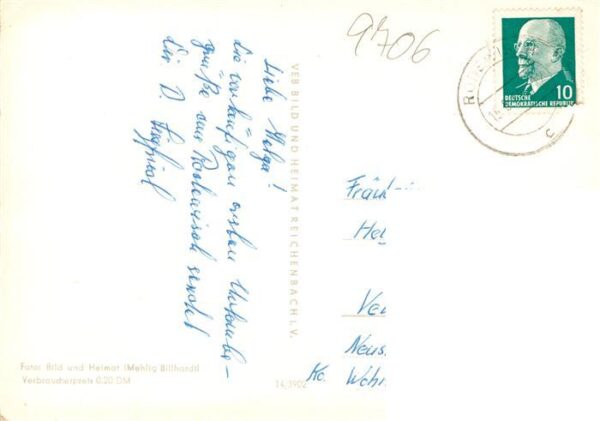 9706
DEUTSCHE
DEMOKRATISCHE REPUBLIK
10
Liebe Helga!
die vorläufigen ersten Urlaubs-
grüße aus
Dir D. Siegfried
VEB BILD UND HEIMAT REICHENBACH I. V.
Fräul
Hel
Neus
Ko. Wehr
Foto: Bild und Heimat (Mehlig Billhardt)
Verbraucherpreis 0,20 DM
14/3902